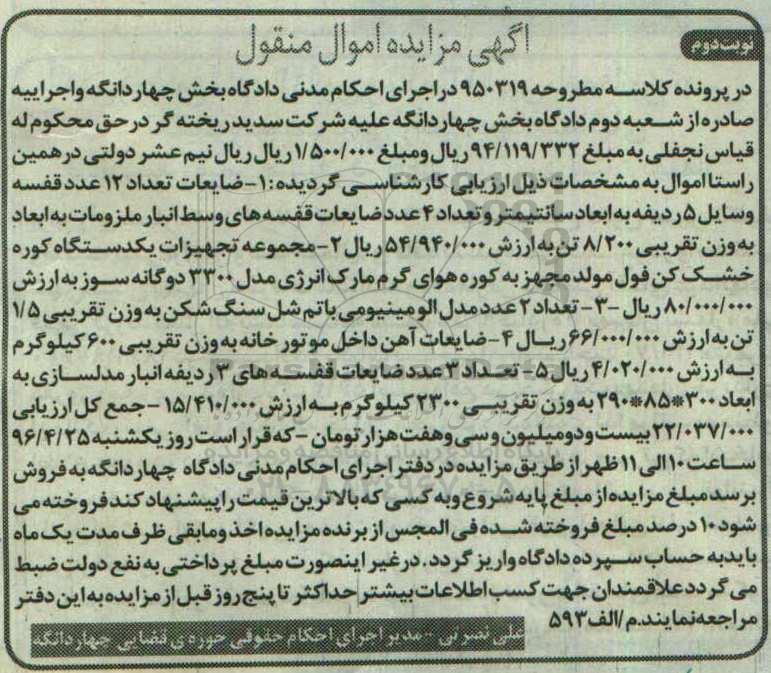 آگهی مزایده اموال منقول
نوبت دوم
در پرونده کلاسه مطروحه ۹۵۰۳۱۹ در اجرای احکام مدنی دادگاه بخش چهاردانگه واجراییه
صادره از شعبه دوم دادگاه بخش چهاردانگه علیه شرکت سدید ریخته گر در حق محکوم له
قیاس نجفلی به مبلغ ۹۴/۱۱۹/۳۳۲ ریال ومبلغ ۱/۵۰۰/۰۰۰ ریال ریال نیم عشر دولتی در همین
راستا اموال به مشخصات ذیل ارزیابی کارشناسی گردیده: ۱-ضایعات تعداد ۱۲ عدد قفسه
وسایل ۵ ردیفه به ابعاد سانتیمتر و تعداد ۴ عدد ضایعات قفسه های وسط انبار ملزومات به ابعاد
به وزن تقریبی ۸/۲۰۰ تن به ارزش ۵۴/۹۴۰/۰۰۰ ریال ۲-مجموعه تجهیزات یکدستگاه کوره
خشک کن فول مولد مجهز به کوره هوای گرم مارک انرژی مدل ۳۳۰۰ دوگانه سوز به ارزش
۸۰/۰۰۰/۰۰۰ ریال -۳- تعداد ۲ عدد مدل الومینیومی باتم شل سنگ شکن به وزن تقریبی ۱/۵
تن به ارزش ۶۶/۰۰۰/۰۰۰ ریال ۴-ضایعات آهن داخل موتور خانه به وزن تقریبی ۶۰۰ کیلوگرم
به ارزش ۴/۰۲۰/۰۰۰ ریال ۵- تعداد ۳ عدد ضایعات قفسه های ۳ ردیفه انبار مدلسازی به
ابعاد ۳۰۰*۸۵*۲۹۰ به وزن تقریبی ۲۳۰۰ کیلوگرم به ارزش ۱۵/۴۱۰/۰۰۰ -جمع کل ارزیابی
۲۲/۰۳۷/۰۰۰ بیست و دو میلیون و سی و هفت هزار تومان -که قرار است روز یکشنبه ۹۶/۴/۲۵
ساعت ۱۰ الی ۱۱ ظهر از طریق مزایده در دفتر اجرای احکام مدنی دادگاه چهاردانگه به فروش
برسد مبلغ مزایده از مبلغ پایه شروع وبه کسی که بالاترین قیمت را پیشنهاد کند فروخته می
شود ۱۰ درصد مبلغ فروخته شده فی المجس از برنده مزایده اخذ ومابقی ظرف مدت یک ماه
باید به حساب سپرده دادگاه واریز گردد. در غیر اینصورت مبلغ پرداختی به نفع دولت ضبط
می گردد علاقمندان جهت کسب اطلاعات بیشتر حداکثر تا پنج روز قبل از مزایده به این دفتر
مراجعه نمایند.م/الف ۵۹۳
علی نصرتی -مدیر اجرای احکام حقوقی حوزه ی قضایی چهاردانگه